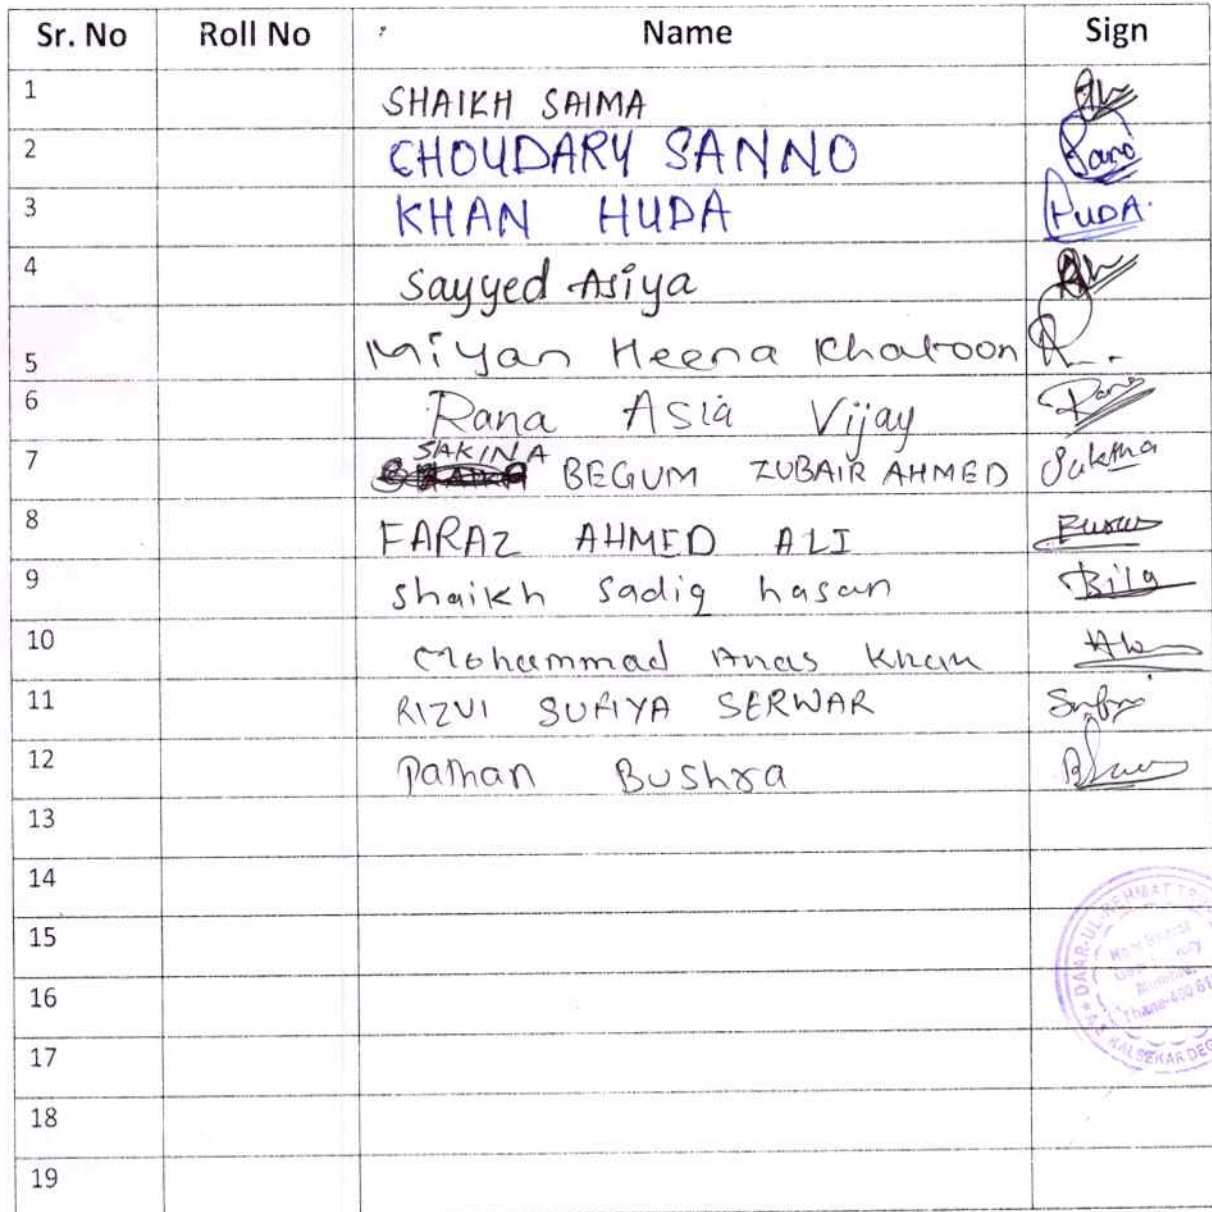 Sr. No Roll No Name Sign
1 SHAIKH SAIMA
2 CHOUDARY SANNO
3 KHAN HUDA HUDA.
4 Sayyed Asiya
5 Miyan Heena Khatoon
6 Rana Asia Vijay Rana
7 SAKINA BEGUM ZUBAIR AHMED Sakina
8 FARAZ AHMED ALI
9 Shaikh Sadiq hasan
10 Mohammad Anas Khan
11 RIZVI SUFIYA SERWAR
12 Pathan Bushra
13
14
15
16
17
18
19
DAAR-UL-REHMAT
Thane-400 61
KALSEKAR DEG